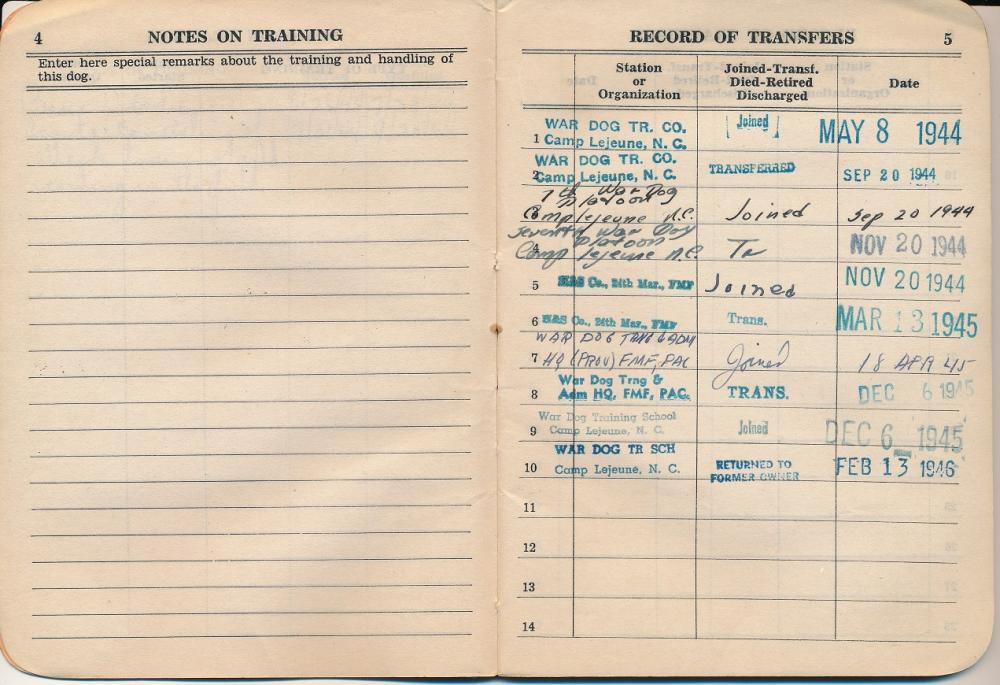 4 NOTES ON TRAINING
Enter here special remarks about the training and handling of
this dog.
RECORD OF TRANSFERS 5
Station
or
Organization
Joined-Transf.
Died-Retired
Discharged
Date
WAR DOG TR. CO.
1 Camp Lejeune, N. C.
Joined
MAY 8 1944
WAR DOG TR. CO.
2 Camp Lejeune, N. C.
TRANSFERRED
SEP 20 1944
7th War Dog
Platoon
Camp Lejeune N.C.
Joined
Sep 20 1944
Seventh War Dog
Platoon
4 Camp Lejeune N.C.
Tr
NOV 20 1944
5 H&S Co., 24th Mar., FMF
Joined
NOV 20 1944
6 H&S Co., 24th Mar., FMF
Trans.
MAR 13 1945
WAR DOG TRNG & ADM
7 HQ (PROV) FMF, PAC
Joined
18 APR 45
War Dog Trng &
8 Adm HQ, FMF, PAC.
TRANS.
DEC 6 1945
War Dog Training School
9 Camp Lejeune, N. C.
Joined
DEC 6 1945
WAR DOG TR SCH
10 Camp Lejeune, N. C.
RETURNED TO
FORMER OWNER
FEB 13 1946
11
12
13
14